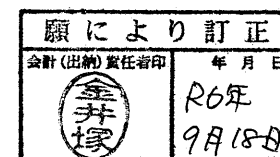 願により訂正
会計(出納)責任者印
年 月 日
金井塚
R6年
9月18日